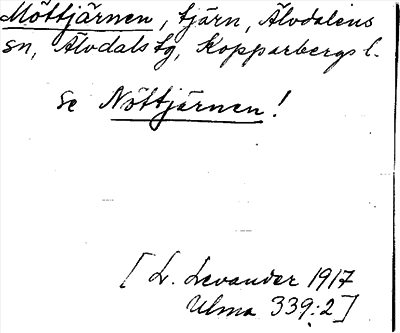 Möttjärnen, tjärn, Älvdalens
sn, Älvdals tg, Kopparbergs l.
Se Nöttjärnen!
[L. Levander 1917
Ulma 339:2]